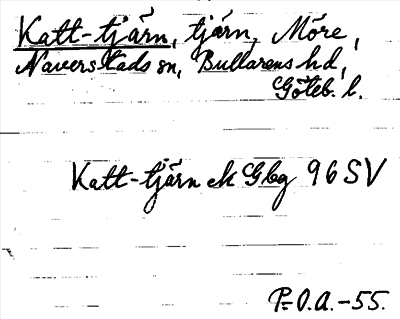 Katt-tjärn, tjärn, Möre,
Naverstads sn, Bullarens hd,
Göteb. l.
Katt-tjärn ek Gbg 96 SV
P.O.A.-55.